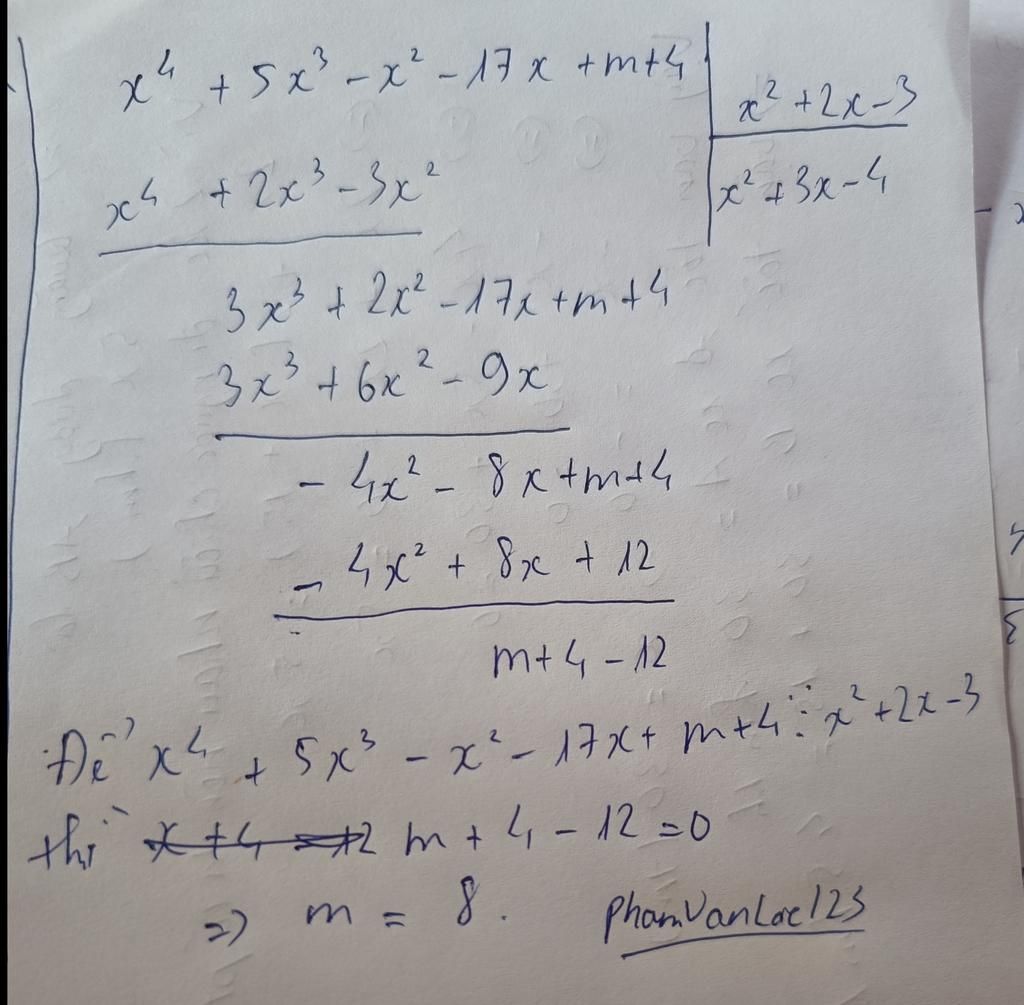 x⁴ + 5x³ - x² - 17x + m+4
x² + 2x - 3
x⁴ + 2x³ - 3x²
x² + 3x - 4
3x³ + 2x² - 17x + m + 4
3x³ + 6x² - 9x
- 4x² - 8x + m + 4
- 4x² + 8x + 12
m + 4 - 12
Để x⁴ + 5x³ - x² - 17x + m+4 ⋮ x² + 2x - 3
thì m + 4 - 12 = 0
=> m = 8.
phamVanLoc123